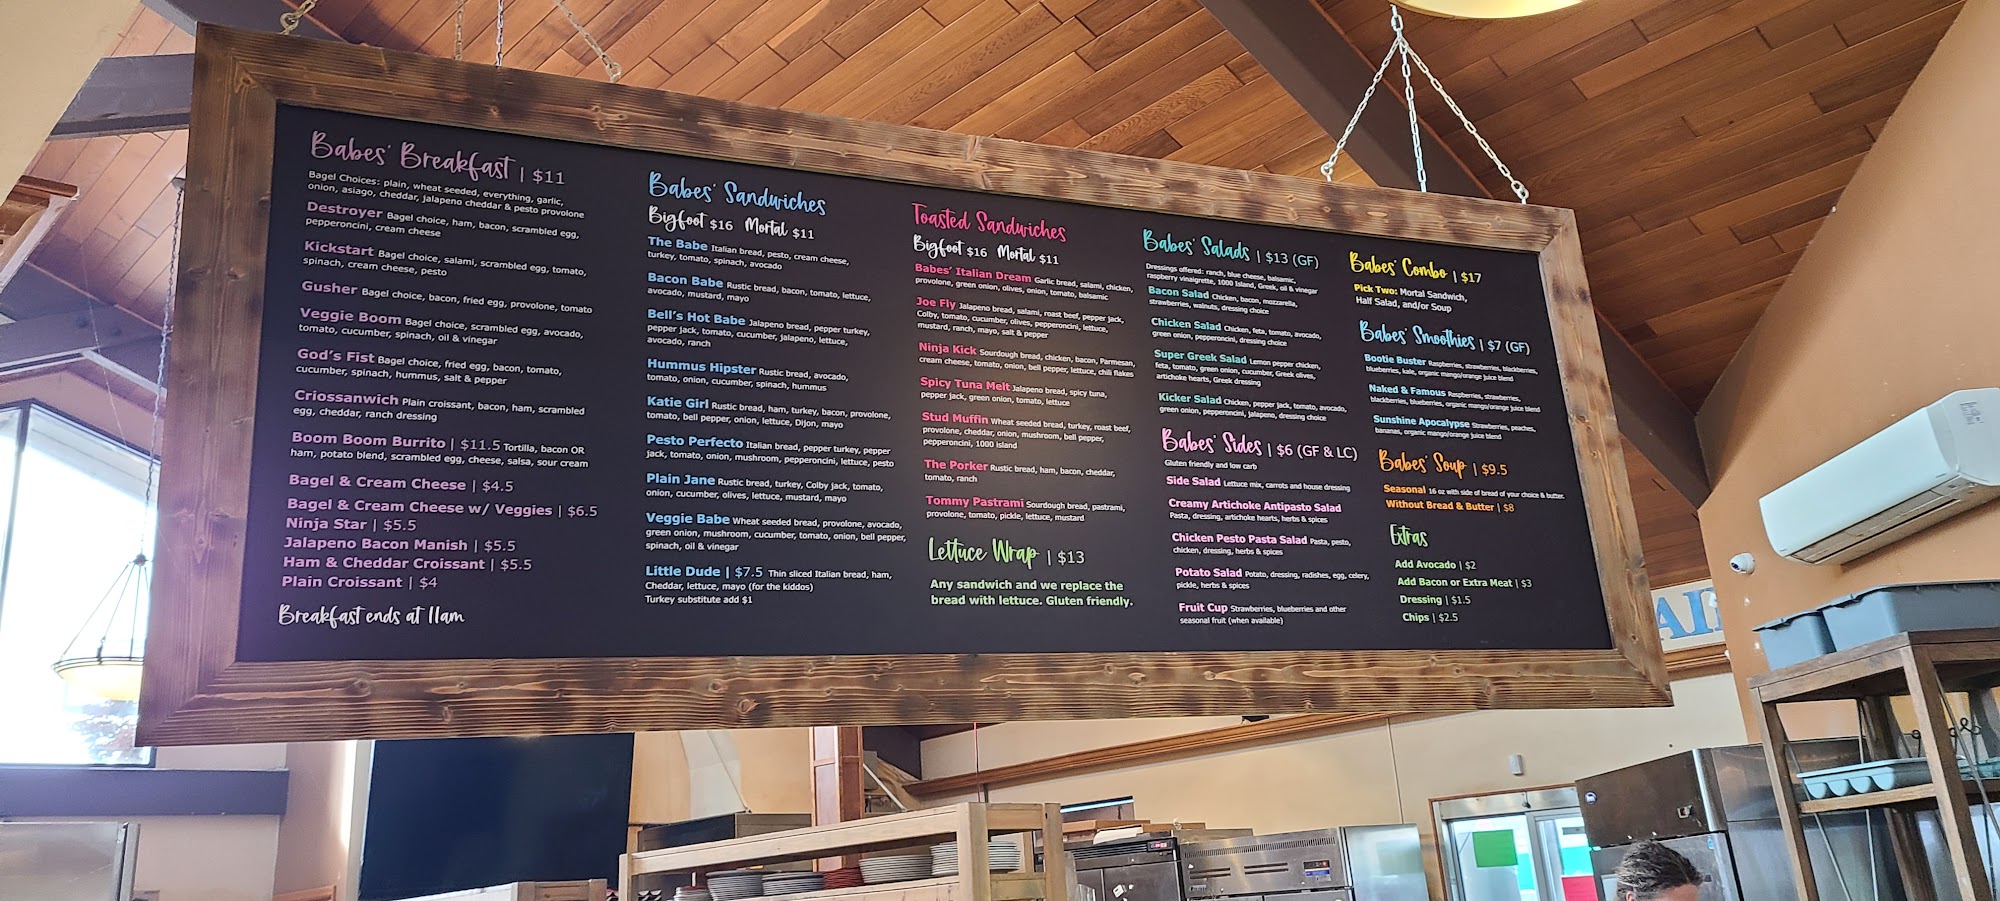 Babes' Breakfast | $11
Bagel Choices: plain, wheat seeded, everything, garlic,
onion, asiago, cheddar, jalapeno cheddar & pesto provolone
Destroyer Bagel choice, ham, bacon, scrambled egg,
pepperoncini, cream cheese
Kickstart Bagel choice, salami, scrambled egg, tomato,
spinach, cream cheese, pesto
Gusher Bagel choice, bacon, fried egg, provolone, tomato
Veggie Boom Bagel choice, scrambled egg, avocado,
tomato, cucumber, spinach, oil & vinegar
God's Fist Bagel choice, fried egg, bacon, tomato,
cucumber, spinach, hummus, salt & pepper
Criossanwich Plain croissant, bacon, ham, scrambled
egg, cheddar, ranch dressing
Boom Boom Burrito | $11.5 Tortilla, bacon OR
ham, potato blend, scrambled egg, cheese, salsa, sour cream
Bagel & Cream Cheese | $4.5
Bagel & Cream Cheese w/ Veggies | $6.5
Ninja Star | $5.5
Jalapeno Bacon Manish | $5.5
Ham & Cheddar Croissant | $5.5
Plain Croissant | $4
Breakfast ends at 11am
Babes' Sandwiches
Bigfoot $16 Mortal $11
The Babe Italian bread, pesto, cream cheese,
turkey, tomato, spinach, avocado
Bacon Babe Rustic bread, bacon, tomato, lettuce,
avocado, mustard, mayo
Bell's Hot Babe Jalapeno bread, pepper turkey,
pepper jack, tomato, cucumber, jalapeno, lettuce,
avocado, ranch
Hummus Hipster Rustic bread, avocado,
tomato, onion, cucumber, spinach, hummus
Katie Girl Rustic bread, ham, turkey, bacon, provolone,
tomato, bell pepper, onion, lettuce, Dijon, mayo
Pesto Perfecto Italian bread, pepper turkey, pepper
jack, tomato, onion, mushroom, pepperoncini, lettuce, pesto
Plain Jane Rustic bread, turkey, Colby jack, tomato,
onion, cucumber, olives, lettuce, mustard, mayo
Veggie Babe Wheat seeded bread, provolone, avocado,
green onion, mushroom, cucumber, tomato, onion, bell pepper,
spinach, oil & vinegar
Little Dude | $7.5 Thin sliced Italian bread, ham,
Cheddar, lettuce, mayo (for the kiddos)
Turkey substitute add $1
Toasted Sandwiches
Bigfoot $16 Mortal $11
Babes' Italian Dream Garlic bread, salami, chicken,
provolone, green onion, olives, onion, tomato, balsamic
Joe Fly Jalapeno bread, salami, roast beef, pepper jack,
Colby, tomato, cucumber, olives, pepperoncini, lettuce,
mustard, ranch, mayo, salt & pepper
Ninja Kick Sourdough bread, chicken, bacon, Parmesan,
cream cheese, tomato, onion, bell pepper, lettuce, chili flakes
Spicy Tuna Melt Jalapeno bread, spicy tuna,
pepper jack, green onion, tomato, lettuce
Stud Muffin Wheat seeded bread, turkey, roast beef,
provolone, cheddar, onion, mushroom, bell pepper,
pepperoncini, 1000 island
The Porker Rustic bread, ham, bacon, cheddar,
tomato, ranch
Tommy Pastrami Sourdough bread, pastrami,
provolone, tomato, pickle, lettuce, mustard
Lettuce Wrap | $13
Any sandwich and we replace the
bread with lettuce. Gluten friendly.
Babes' Salads | $13 (GF)
Dressings offered: ranch, blue cheese, balsamic,
raspberry vinaigrette, 1000 Island, Greek, oil & vinegar
Bacon Salad Chicken, bacon, mozzarella,
strawberries, walnuts, dressing choice
Chicken Salad Chicken, feta, tomato, avocado,
green onion, pepperoncini, dressing choice
Super Greek Salad Lemon pepper chicken,
feta, tomato, green onion, cucumber, Greek olives,
artichoke hearts, Greek dressing
Kicker Salad Chicken, pepper jack, tomato, avocado,
green onion, pepperoncini, jalapeno, dressing choice
Babes' Sides | $6 (GF & LC)
Gluten friendly and low carb
Side Salad Lettuce mix, carrots and house dressing
Creamy Artichoke Antipasto Salad
Pasta, dressing, artichoke hearts, herbs & spices
Chicken Pesto Pasta Salad Pasta, pesto,
chicken, dressing, herbs & spices
Potato Salad Potato, dressing, radishes, egg, celery,
pickle, herbs & spices
Fruit Cup Strawberries, blueberries and other
seasonal fruit (when available)
Babes' Combo | $17
Pick Two: Mortal Sandwich,
Half Salad, and/or Soup
Babes' Smoothies | $7 (GF)
Bootie Buster Raspberries, strawberries, blackberries,
blueberries, kale, organic mango/orange juice blend
Naked & Famous Raspberries, strawberries,
blackberries, blueberries, organic mango/orange juice blend
Sunshine Apocalypse Strawberries, peaches,
bananas, organic mango/orange juice blend
Babes' Soup | $9.5
Seasonal 16 oz with side of bread of your choice & butter.
Without Bread & Butter | $8
Extras
Add Avocado | $2
Add Bacon or Extra Meat | $3
Dressing | $1.5
Chips | $2.5